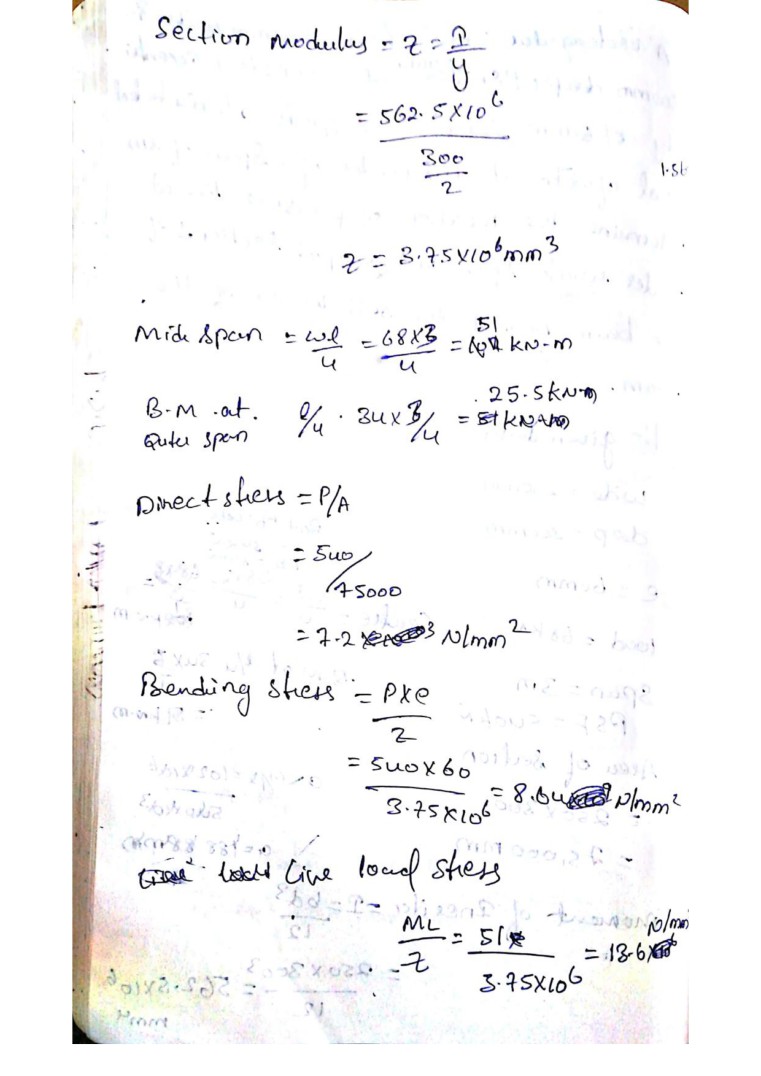 Section modulus = z = I/y
= 562.5×10⁶
300
2
1.5
z = 3.75×10⁶ mm³
Mid span = wl/4 = 68×3/4 = 51 kN-m
B.M at. l/4 . 34×3/4 = 25.5 kN-m
Quter span
Direct stress = P/A
= 540/75000
= 7.2 N/mm²
Bending stress = P×e
z
= 540×60
3.75×10⁶
= 8.64 N/mm²
live load stress
ML/Z = 51
3.75×10⁶
= 13.6 N/mm